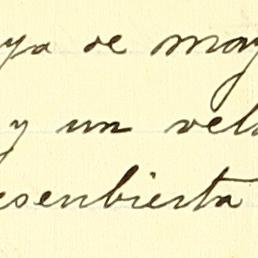 ya de may
y un vel
esenbierta